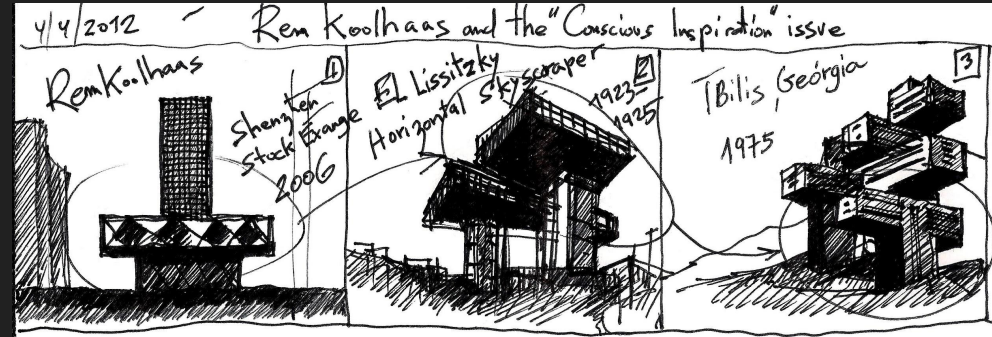 4/4/2012 Rem Koolhaas and the "Conscious Inspiration" issue
Rem Koolhaas
1
Shenzhen
Stock Exange
2006
EL Lissitzky
Horizontal Skyscraper
1923-
1925
2
TBilis, Geórgia
1975
3